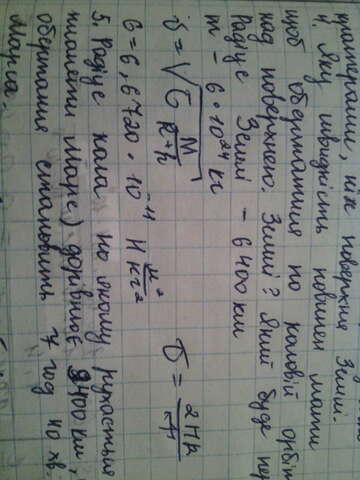 матеріали, ніж поверхня Землі.
4. Яку швидкість повинен мати
щоб обертатися по коловій орбіт
над поверхнею Землі? Який буде пер
Радіус Землі – 6400 км
m – 6·10²⁴ кг
υ = √G M/R+h
υ = 2πR/T
G = 6,6720·10⁻¹¹ Н м²/кг²
5. Радіус кола по якому рухається
планети Марс) дорівнює 9400 км,
обертання становить 7 год 40 хв.
Марса.